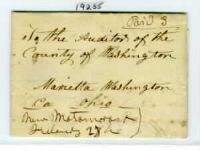 19255
Paid 3
To the Auditor of the
County of Washington
Marietta Washington
Co Ohio
New Matamoras
28